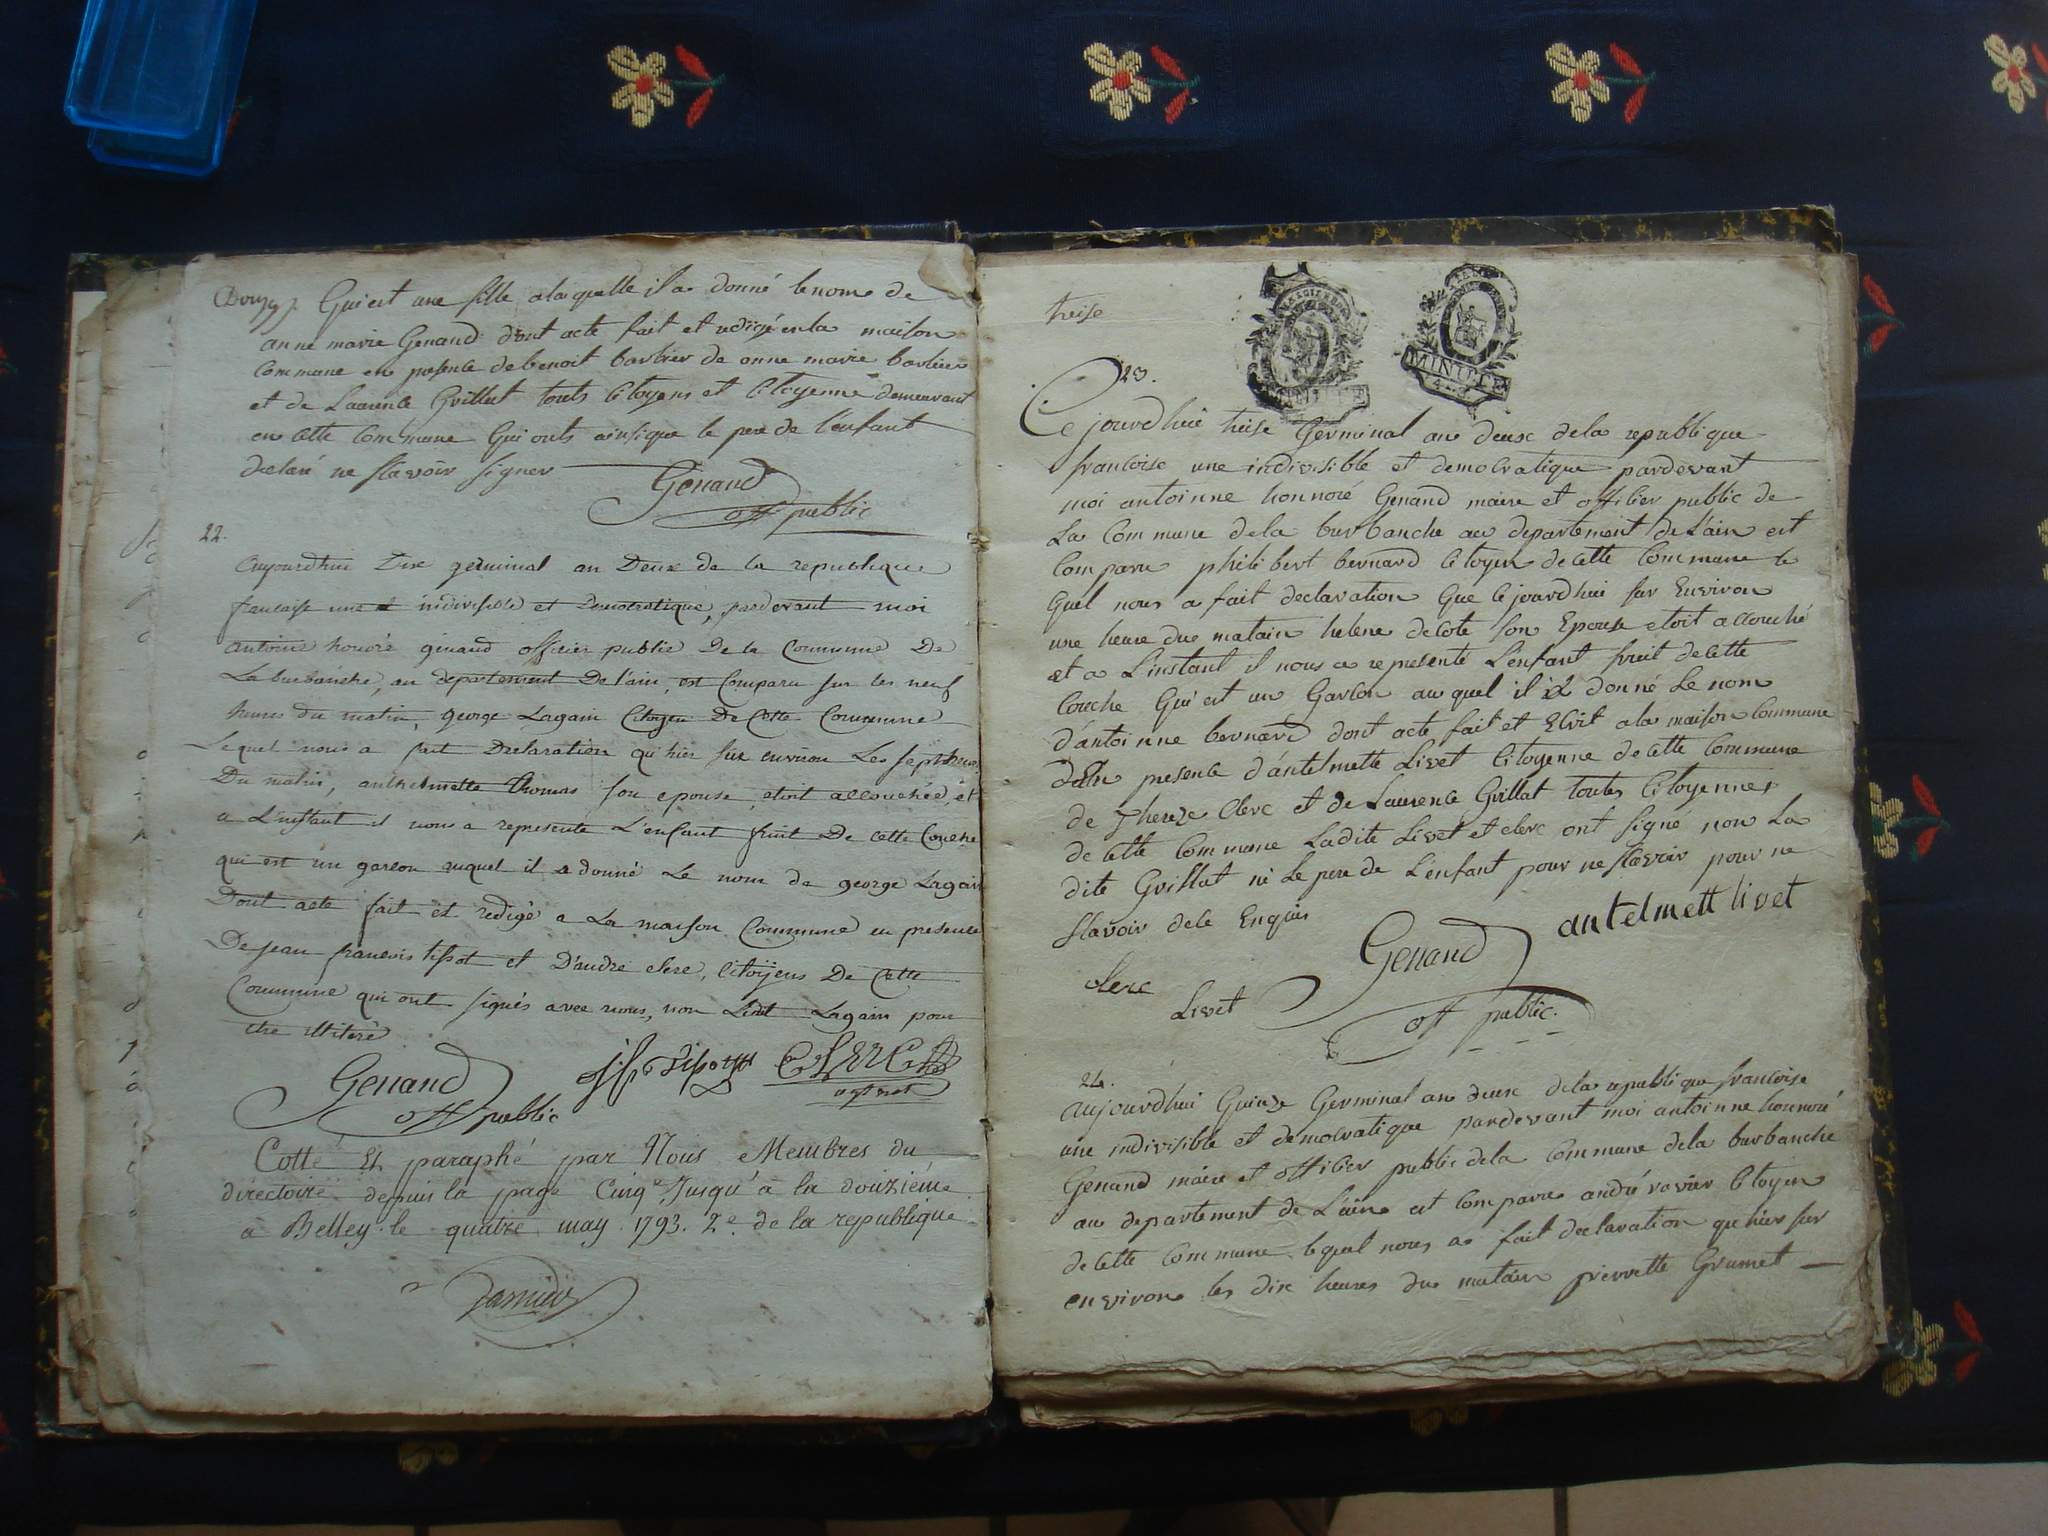 Douze Qui est une fille a laquelle il a donné le nom de
anne marie Genand dont acte fait et redigé en la maison
Commune en presence de benoit barbier de anne marie barbier
et de Laurence Guillat touts Citoyens et Citoyenne demeurant
en cette Commune Qui onts ainsique le pere de l'enfant
declaré ne scavoir signer
Genand
off public
22.
aujourdhui Dix germinal an Deux de la republique
francaise une et indivisible et Democratique, pardevant moi
antoine honoré génand officier public De la Commune De
La burbanche, au departement De l'ain, est Comparu sur les neuf
heures du matin, george Lagain Citoyen De Cette Commune
Lequel nous a fait Declaration qu'hier sur environ Les sept heures
Du matin, anthelmette thomas son epouse, etoit accouchée, et
a L'instant il nous a representé L'enfant fruit De cette Couche
qui est un garcon auquel il a donné Le nom de george Lagain
Dont acte fait et redigé a La maison Commune en presence
De jean francois tipot et D'andré clerc, Citoÿens De Cette
Commune qui ont signés avec nous, non Ledit Lagain pour
être illiteré
Genand
off public
CLERC
Cotté Et paraphé par Nous Membres du
directoire depuis la page Cinq.e Jusqu'à la douzième
à Belley le quatre may 1793. 2.e de la republique
treise
MINUTE
MINUTE
23.
Ce jourdhui treise Germinal an deuxe dela republique
francoise une indivisible et democratique pardevant
moi antoinne honnoré Genand maire et officier public de
La Commune dela burbanche au departement de L'ain est
Comparu philibert bernard Citoyen de cette Commune le
Quel nous a fait declaration Que cejourdhui sur Environ
une heure du matain helene decote son Epouse etoit accouché
et a L'instant il nous a representé L'enfant fruit de cette
Couche Qui est un Garcon au quel il a donné Le nom
d'antoinne bernard dont acte fait et Ecrit a la maison Commune
En presence d'antelmette Livet Citoyenne de cette Commune
de Thereze Clerc et de Laurence Guillat toutes Citoyennes
de cette Commune Ladite Livet et clerc ont signé non La
dite Guillat ni Le pere de L'enfant pour ne scavoir pour ne
scavoir dece Enquis
antelmett livet
Genand
clerc
Livet
off public.
24.
aujourdhui Quinze Germinal an deuxe dela republique francoise
une indivisible et democratique pardevant moi antoinne honnoré
Genand maire et officier public dela Commune dela burbanche
au departement de L'ain est Comparu andré ravier Citoyen
de cette Commune lequel nous a fait declaration que hier sur
environ les dix heures du matain pierrette Grumet